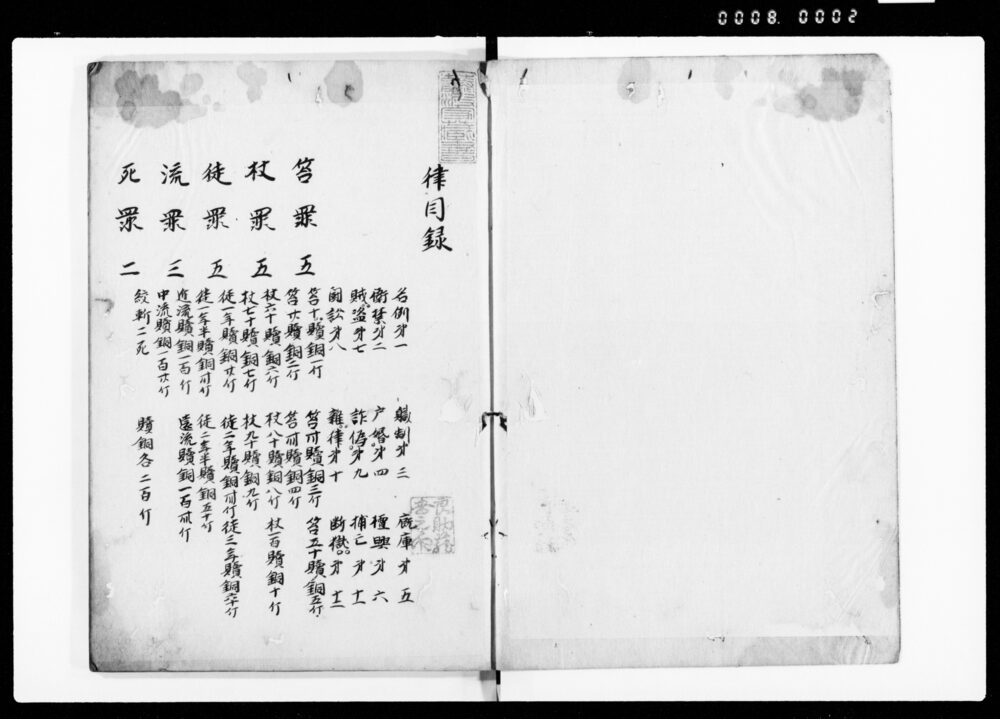 0008 0002
律目録
名例第一 職制第三 厩庫第五
衛禁第二 户婚第四 擅興第六
賊盗第七 詐偽第九 捕亡第十一
闘訟第八 雜律第十 断獄第十二
笞罪五 笞十贖銅一斤 笞卅贖銅三斤 笞五十贖銅五斤
笞廿贖銅二斤 笞卌贖銅四斤
杖罪五 杖六十贖銅六斤 杖八十贖銅八斤 杖一百贖銅十斤
杖七十贖銅七斤 杖九十贖銅九斤
徒罪五 徒一年贖銅廿斤 徒二年贖銅卌斤 徒三年贖銅六十斤
徒一年半贖銅卅斤 徒二年半贖銅五十斤
流罪三 近流贖銅一百斤 遠流贖銅一百卌斤
中流贖銅一百廿斤
死罪二 絞斬二死 贖銅各二百斤